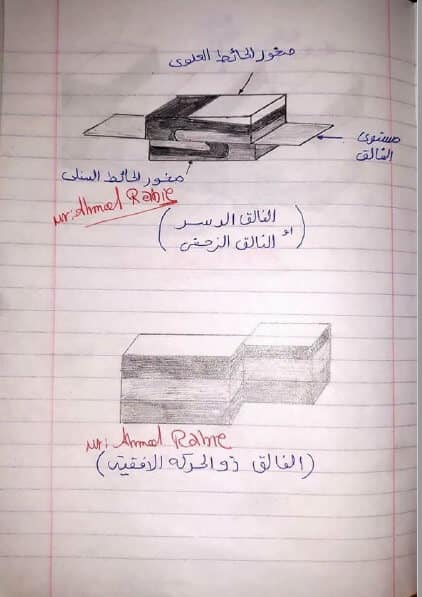 صخور الحائط العلوى
مستوى
الفالق
صخور الحائط السفلى
Mr: Ahmed Rabie
(الفالق الدسر
أو
الفالق الزحفى)
Mr: Ahmed Rabie
(الفالق ذو الحركة الافقية)